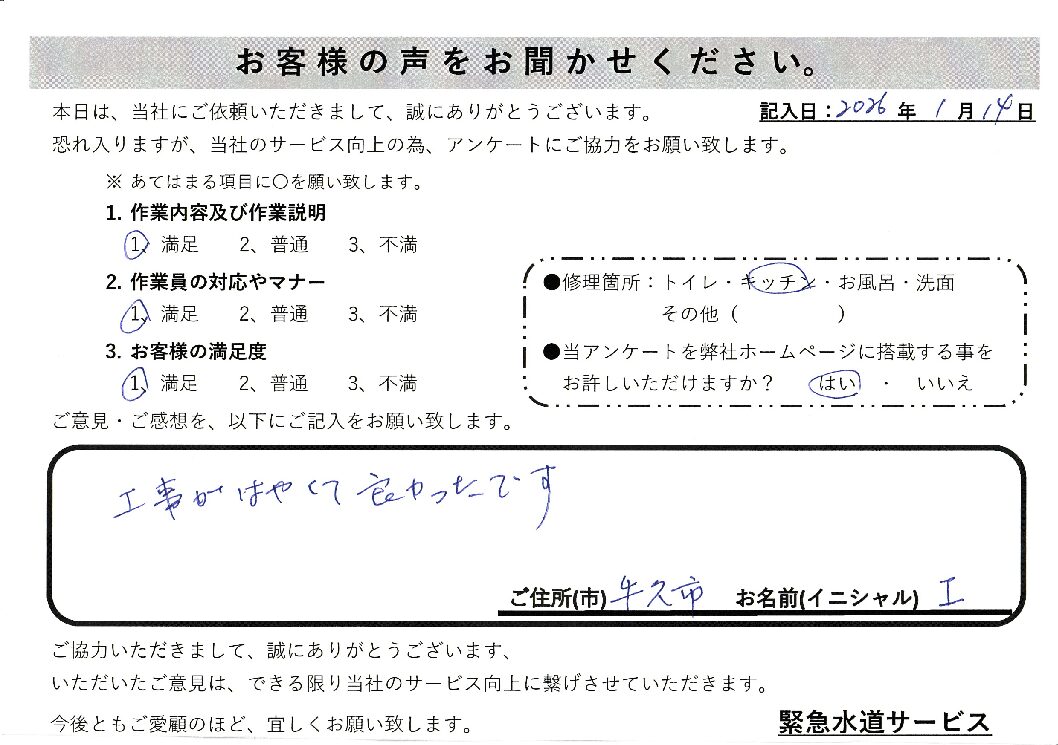 お客様の声をお聞かせください。
本日は、当社にご依頼いただきまして、誠にありがとうございます。
記入日：2026年 1月14日
恐れ入りますが、当社のサービス向上の為、アンケートにご協力をお願い致します。
※ あてはまる項目に〇を願い致します。
1. 作業内容及び作業説明
1、満足 2、普通 3、不満
2. 作業員の対応やマナー
1、満足 2、普通 3、不満
3. お客様の満足度
1、満足 2、普通 3、不満
●修理箇所：トイレ・キッチン・お風呂・洗面
その他（ ）
●当アンケートを弊社ホームページに搭載する事を
お許しいただけますか？ はい ・ いいえ
ご意見・ご感想を、以下にご記入をお願い致します。
工事がはやくて良かったです
ご住所(市) 牛久市 お名前(イニシャル) I
ご協力いただきまして、誠にありがとうございます、
いただいたご意見は、できる限り当社のサービス向上に繋げさせていただきます。
今後ともご愛顧のほど、宜しくお願い致します。
緊急水道サービス